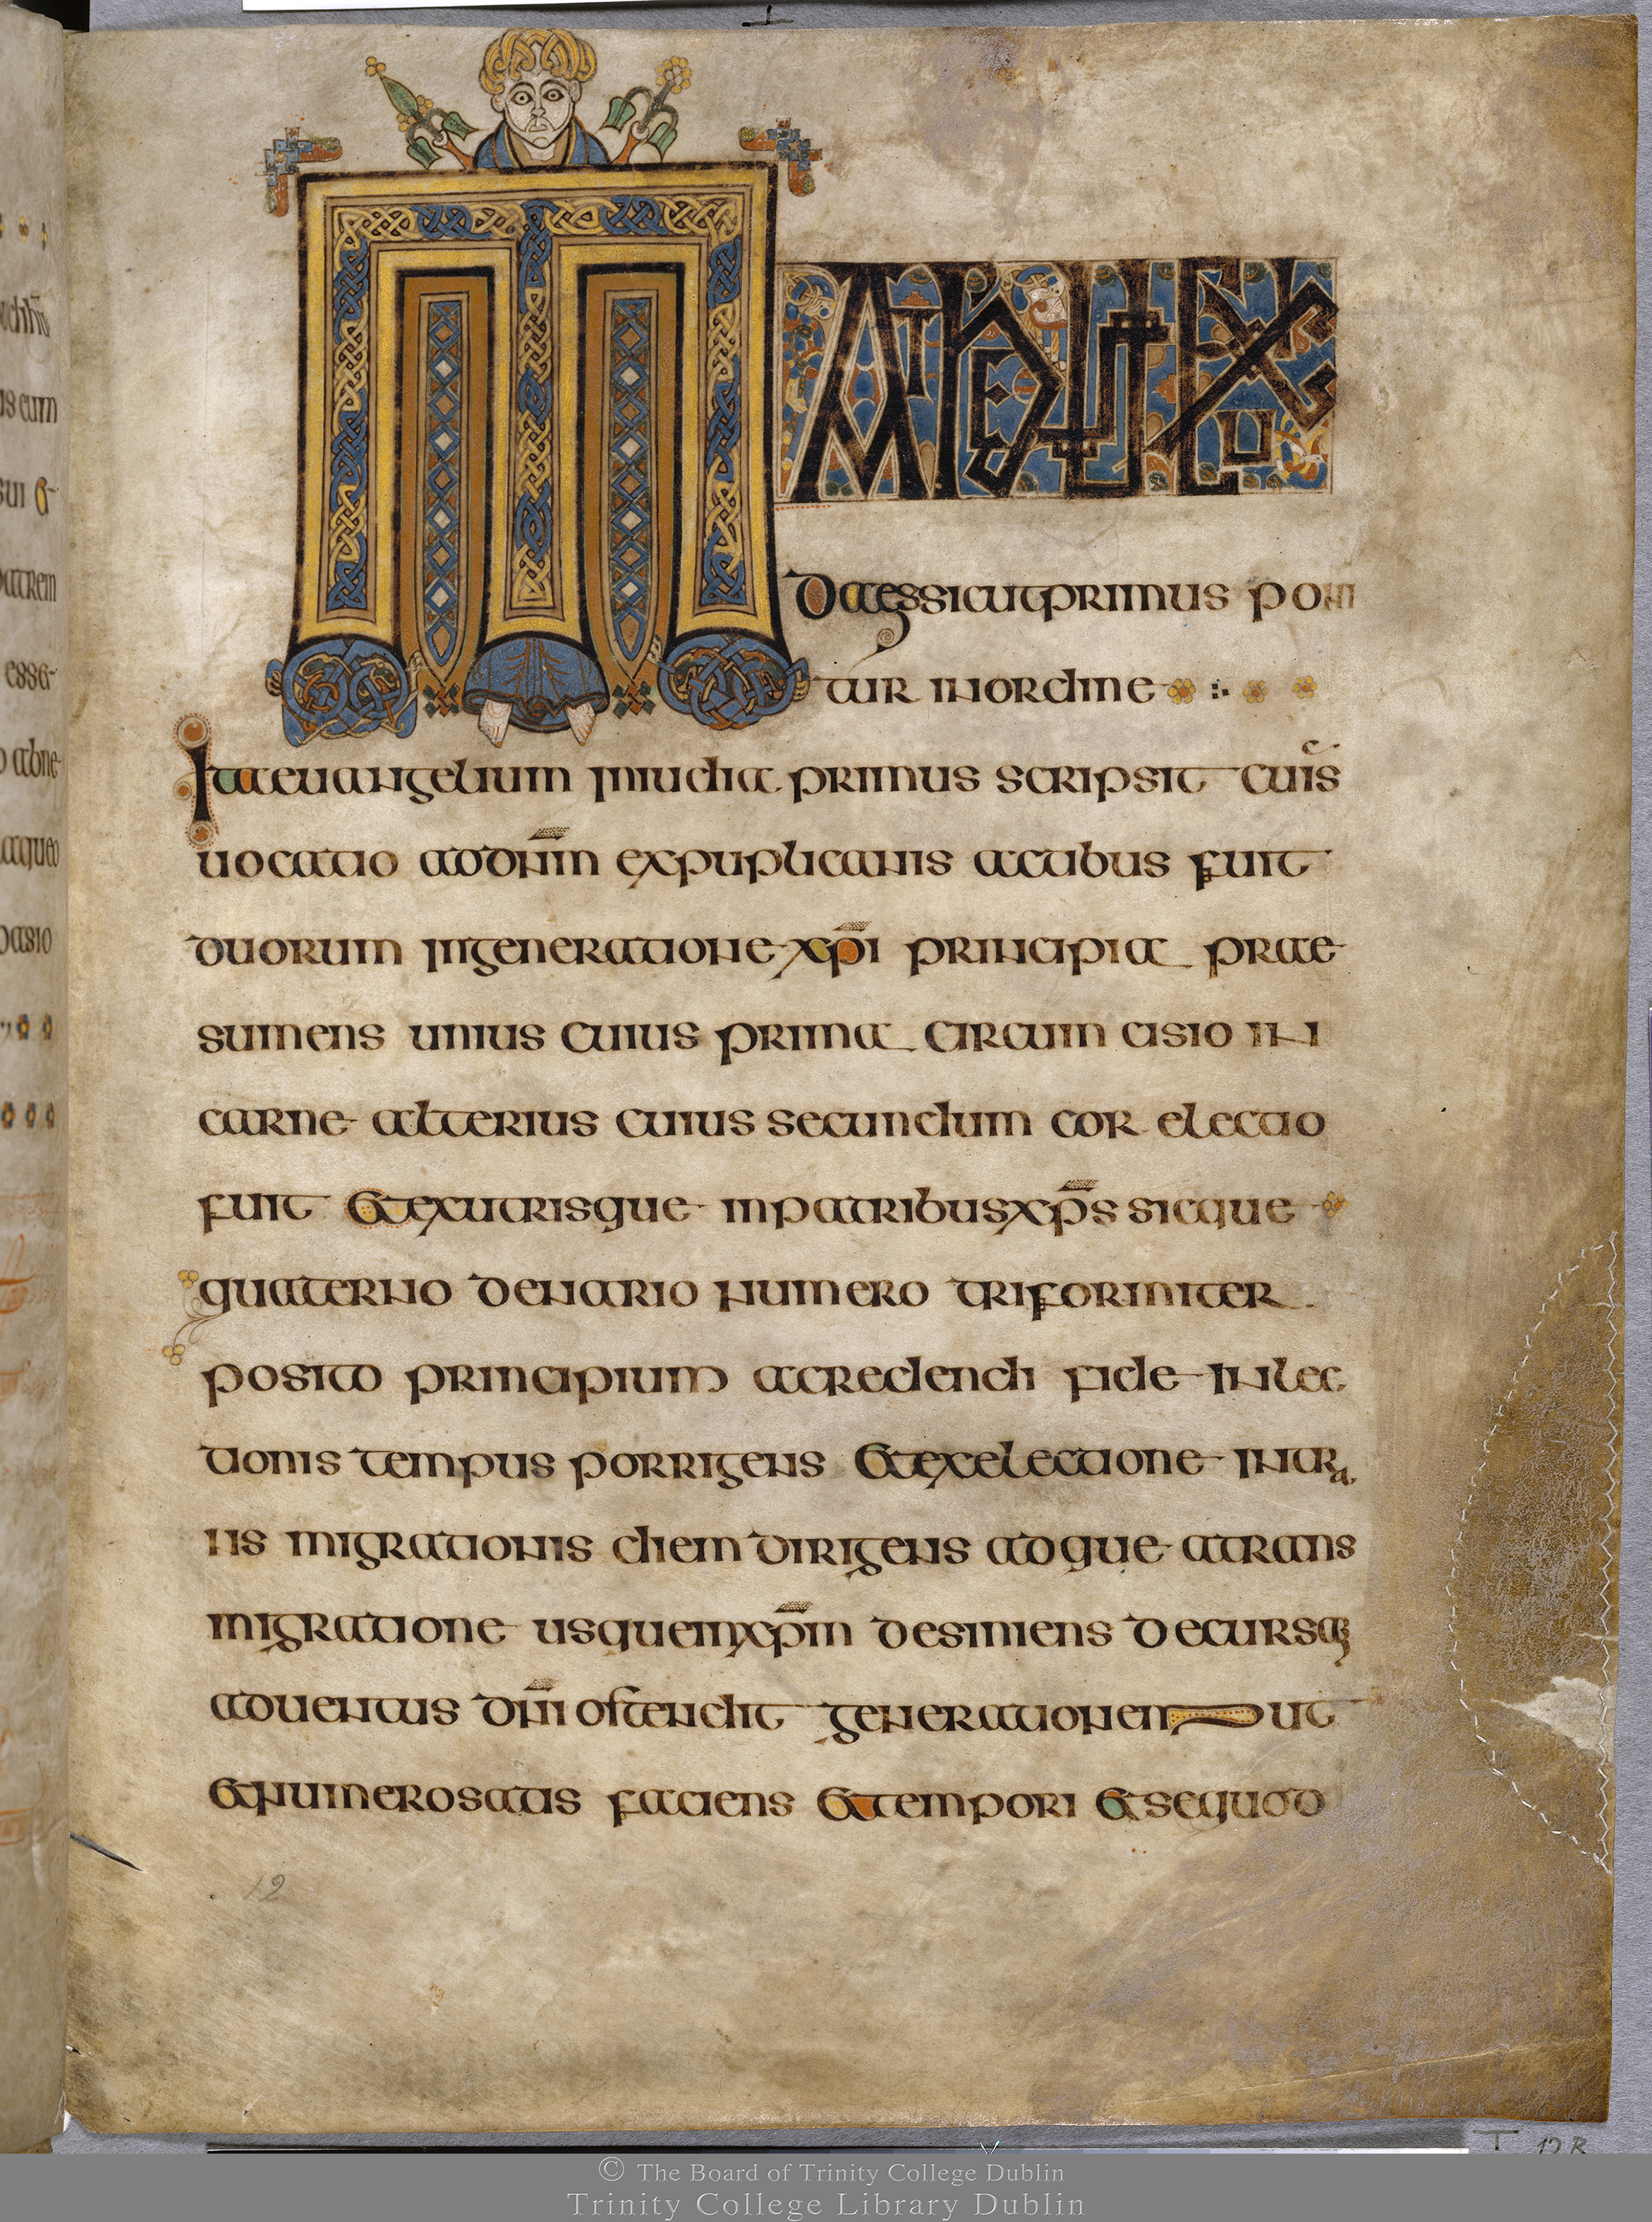 MATHEUS EX IU
DAEA SICUT PRIMUS PONI
TUR IN ORDINE
ITA EUANGELIUM IN IUDIA PRIMUS SCRIPSIT CUIS
UOCATIO AD DNM EX PUPLICANIS ACTIBUS FUIT
DUORUM IN GENERATIONE XPI PRINCIPIA PRAE
SUMENS UNIUS CUIUS PRIMA CIRCUM CISIO IN
CARNE ALTERIUS CUIUS SECUNDUM COR ELECTIO
FUIT ET EX UTRISQUE IN PATRIBUS XPS SICQUE
QUATERNO DENARIO NUMERO TRIFORMITER
POSITO PRINCIPIUM A CREDENDI FIDE IN ELEC
TIONIS TEMPUS PORRIGENS ET EX ELECTIONE IN TRA
NS MIGRATIONIS DIEM DIRIGENS ADQUE A TRANS
MIGRATIONE USQUE IN XPM DESINIENS DECURSA
ADUENTUS DNI OSTENDIT GENERATIONEM UT
ET NUMERO SATIS FACIENS ET TEMPORI ET SE QUOD
12
T 12R
© The Board of Trinity College Dublin
Trinity College Library Dublin